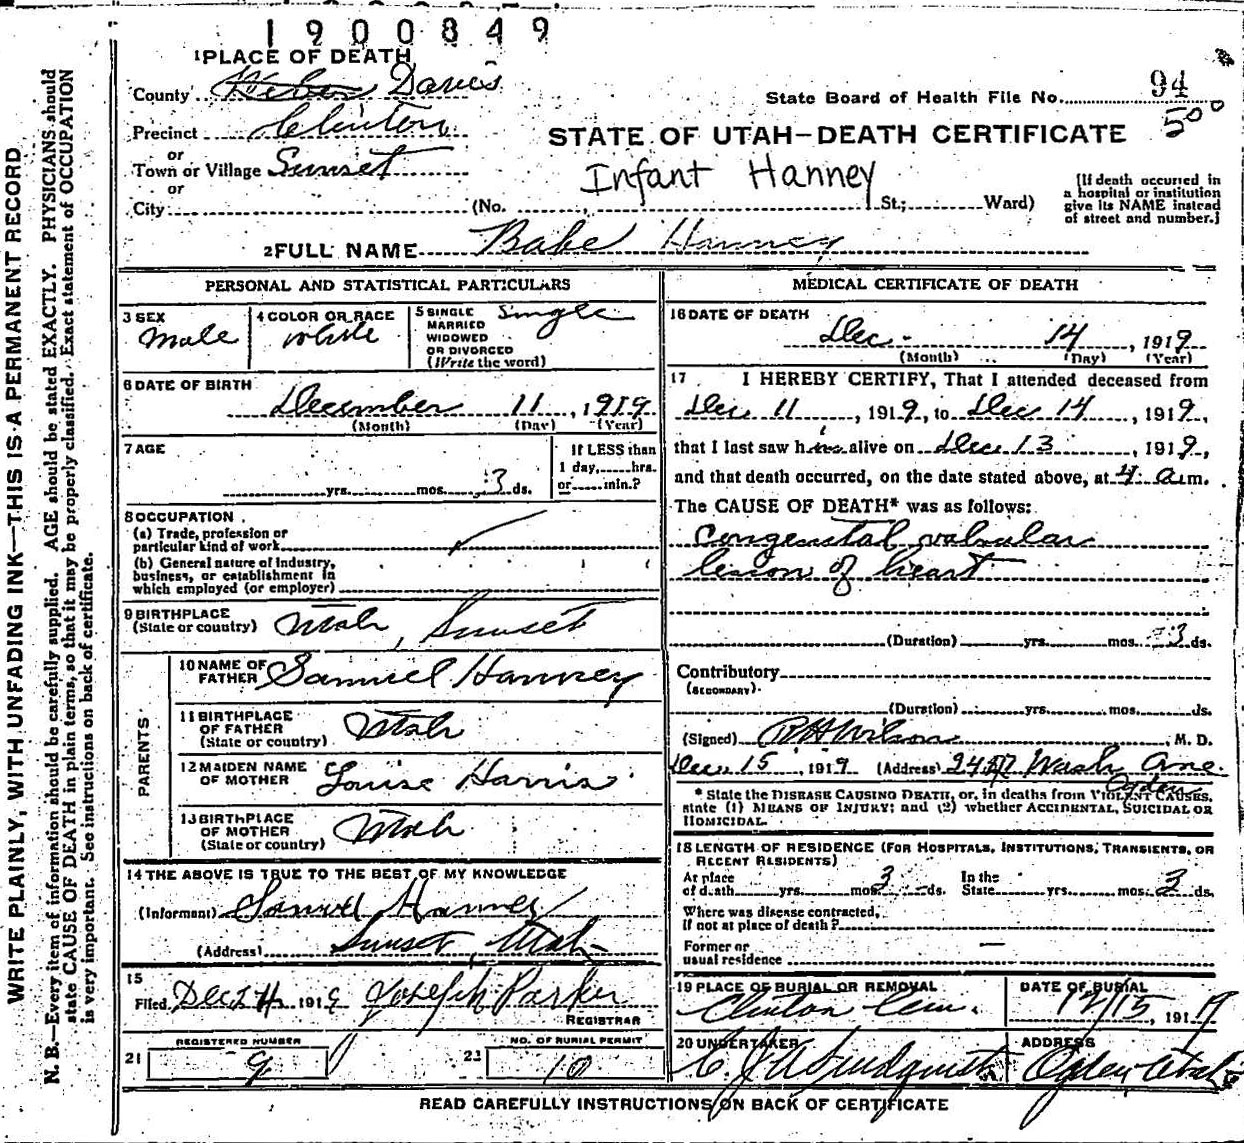 1900849
1 PLACE OF DEATH
County Weber Davis
State Board of Health File No. 94
500
Precinct Clinton
STATE OF UTAH—DEATH CERTIFICATE
or
Town or Village Sunset
Infant Hanney
or
City (No. , St.; Ward)
(If death occurred in
a hospital or institution
give its NAME instead
of street and number.)
2 FULL NAME Babe Hanney
PERSONAL AND STATISTICAL PARTICULARS
3 SEX
Male
4 COLOR OR RACE
white
5 SINGLE
MARRIED
WIDOWED
OR DIVORCED
(Write the word)
Single
6 DATE OF BIRTH
December 11, 1919
(Month) (Day) (Year)
7 AGE
yrs. mos. 3 ds.
If LESS than
1 day, hrs.
or min.?
8 OCCUPATION
(a) Trade, profession or
particular kind of work
(b) General nature of Industry,
business, or establishment in
which employed (or employer)
9 BIRTHPLACE
(State or country) Utah, Sunset
PARENTS
10 NAME OF
FATHER Samuel Hanney
11 BIRTHPLACE
OF FATHER
(State or country) Utah
12 MAIDEN NAME
OF MOTHER Louise Harris
13 BIRTHPLACE
OF MOTHER
(State or country) Utah
14 THE ABOVE IS TRUE TO THE BEST OF MY KNOWLEDGE
(Informant) Samuel Hanney
(Address) Sunset, Utah
15
Filed Dec 191 Joseph Parker
REGISTRAR
REGISTERED NUMBER
21 9
NO. OF BURIAL PERMIT
22 10
MEDICAL CERTIFICATE OF DEATH
16 DATE OF DEATH
Dec. 14, 1919
(Month) (Day) (Year)
17 I HEREBY CERTIFY, That I attended deceased from
Dec 11, 1919, to Dec 14, 1919,
that I last saw him alive on Dec 13, 1919,
and that death occurred, on the date stated above, at 4 a.m.
The CAUSE OF DEATH* was as follows:
Congenital valvular
lesion of heart
(Duration) yrs. mos. 3 ds.
Contributory
(SECONDARY)
(Duration) yrs. mos. ds.
(Signed) R H Wilson, M. D.
Dec 15, 1919 (Address) Wash Ave.
Ogden
* State the DISEASE CAUSING DEATH, or, in deaths from VIOLENT CAUSES,
state (1) MEANS OF INJURY; and (2) whether ACCIDENTAL, SUICIDAL OR
HOMICIDAL.
18 LENGTH OF RESIDENCE (FOR HOSPITALS, INSTITUTIONS, TRANSIENTS, OR
RECENT RESIDENTS)
At place
of death yrs. mos. 3 ds.
In the
State yrs. mos. 3 ds.
Where was disease contracted,
If not at place of death?
Former or
usual residence —
19 PLACE OF BURIAL OR REMOVAL
Clinton Cem.
DATE OF BURIAL
12/15, 1919
20 UNDERTAKER
C. J. A. Lindquist
ADDRESS
Ogden Utah
READ CAREFULLY INSTRUCTIONS ON BACK OF CERTIFICATE
WRITE PLAINLY, WITH UNFADING INK—THIS IS A PERMANENT RECORD
N. B.—Every item of information should be carefully supplied. AGE should be stated EXACTLY. PHYSICIANS should
state CAUSE OF DEATH in plain terms, so that it may be properly classified. Exact statement of OCCUPATION
is very important. See instructions on back of certificate.